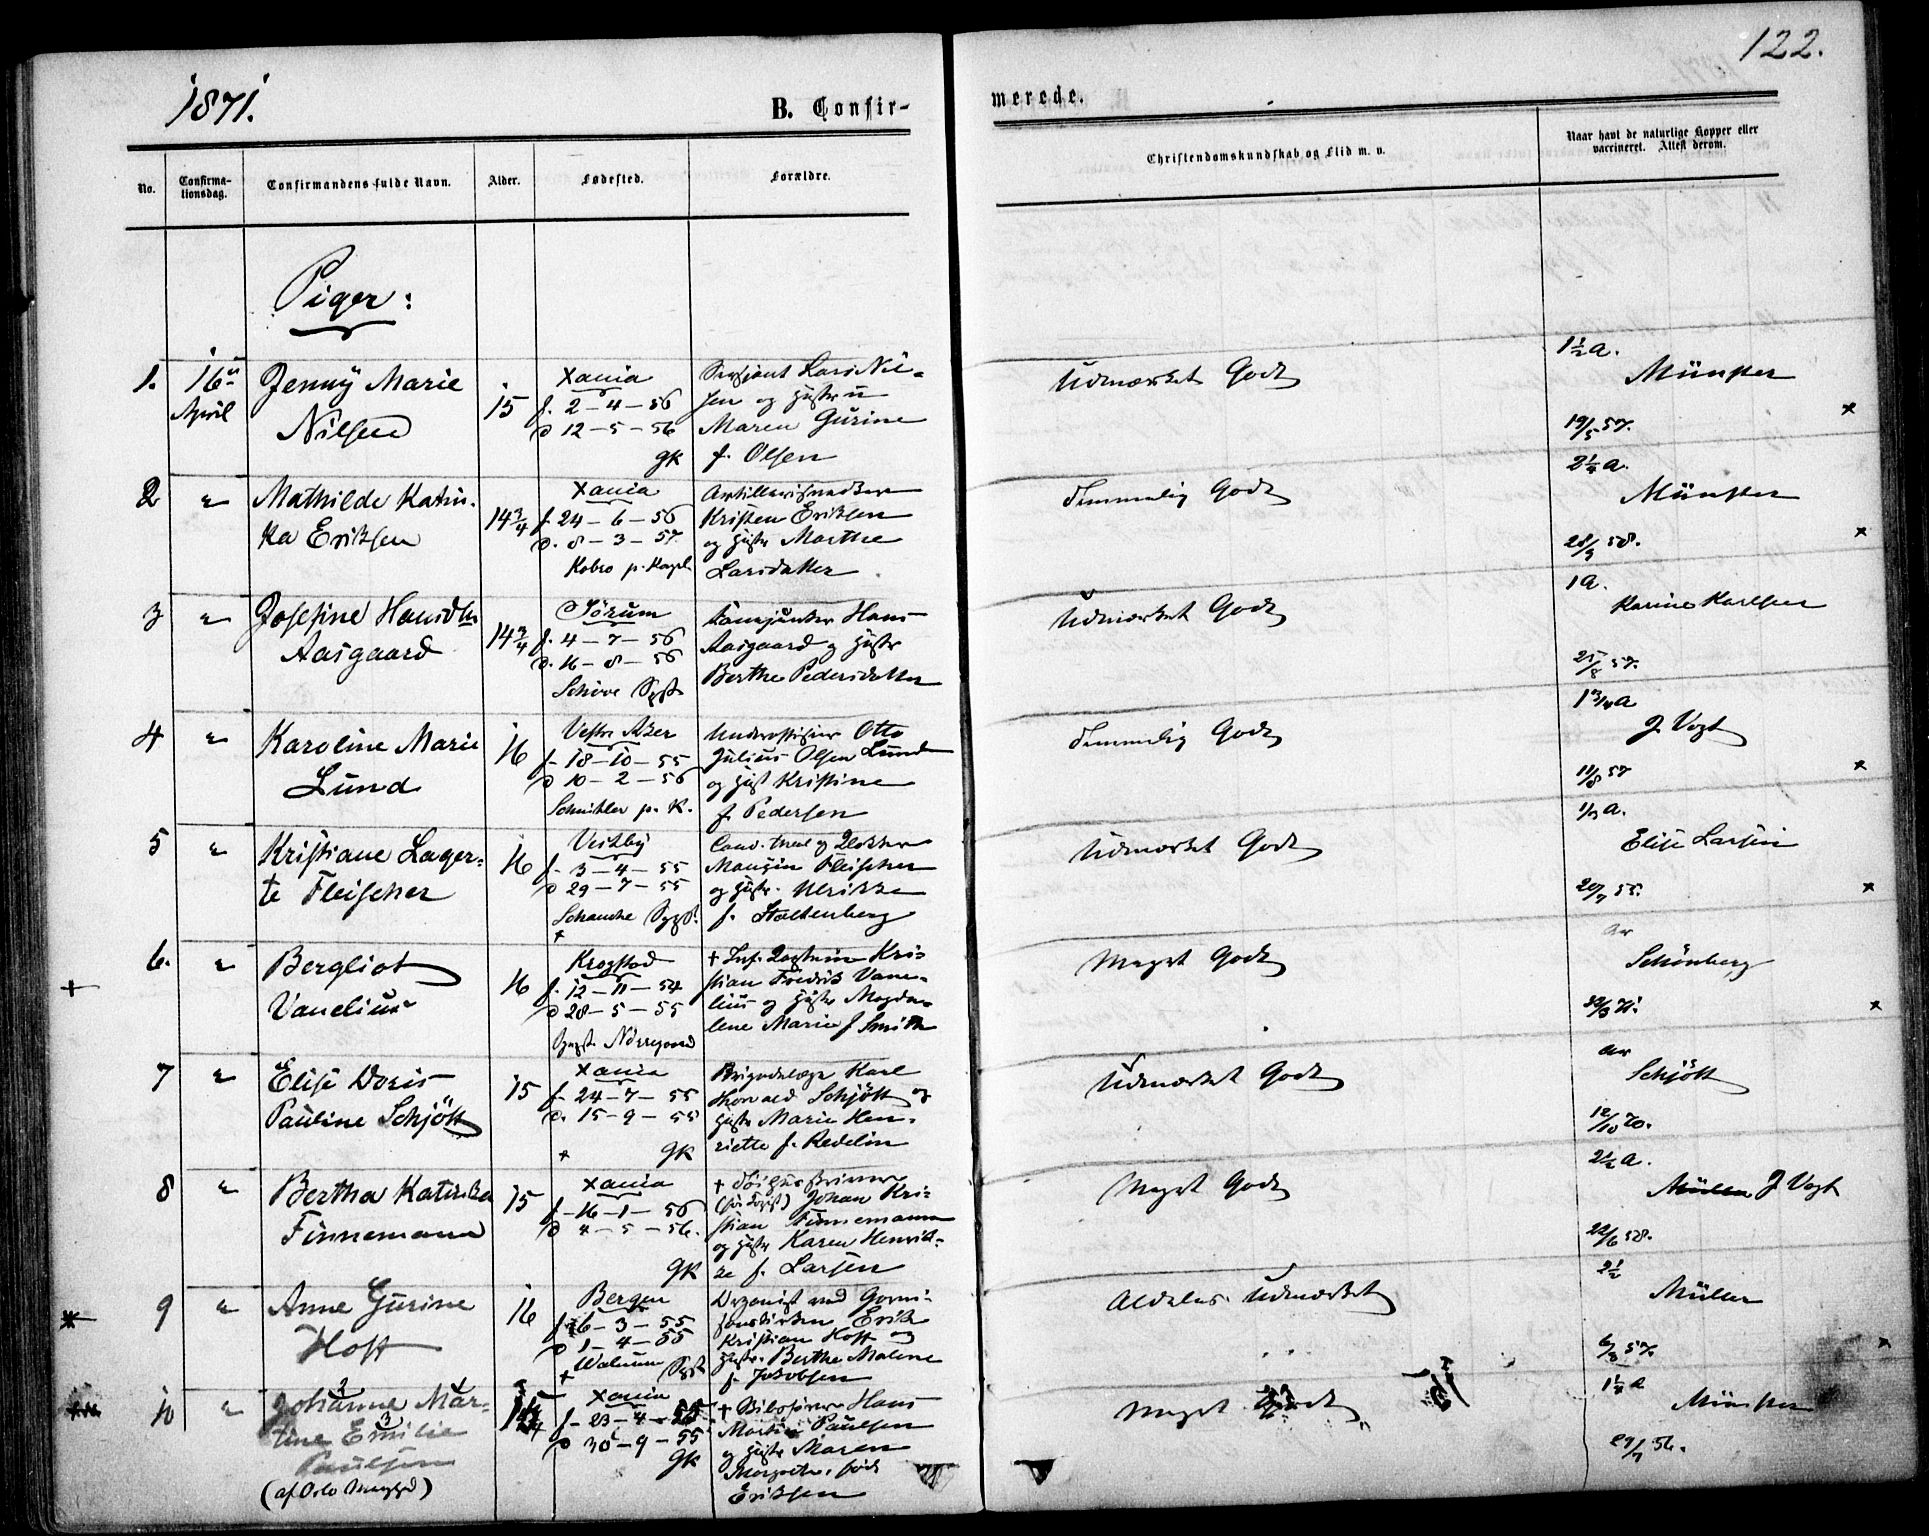 122.
1871.
B. Confir-
merede.
No.
Confirma-
tionsdag.
Confirmandens fulde Navn.
Alder.
Fødested.
Forældre.
Christendomskundskab og Flid m. v.
Naar havt de naturlige Kopper eller
vaccineret. Attest derom.
Piger:
1.
16
April
Jenny Marie
Nilsen
15
Xania
f. 2-4-56
d 12-5-56
gk
Sersjant Lars Nil-
sen og Hustru
Maren Gurine
f. Olsen
Udmærket Godt
1½ a.
Münster
19/5 57.
2
"
Mathilde Katin-
ka Eriksen
14¾
Xania
f. 24-6-56
d. 8-3-57.
Kobro p. Kapel.
Kristen Eriksen
og Hustr Marthe
Larsdatter
Temmelig Godt
2¼ a.
Münster
28/9 58.
3
"
Josefine Hansdtr
Aasgaard
14¾
Sörum
f. 4-7-56
d. 16-8-56
Hans
Aasgaard og Hustr
Berthe Pedersdatter
Udmærket Godt
1 a.
Karine Karlsen
25/8 57.
4
"
Karoline Marie
Lund
16
Vestre Aker
f. 18-10-55
d 10-2-56
Schnitler p. K.
Underoffisier Otto
Julius Olsen Lund
og Hust Kristine
f. Pedersen
Temmelig Godt
1 3/4 a
J. Vogt
11/8 57
5
"
Kristiane Lager-
te Fleischer
16
Vestby
f. 3-4-55
d 29-7-55
Cand. theol og Klokker
Fleischer
og Hustr. Ulrikke
f. Stoltenberg
Udmærket Godt
Elise Larsen
20/7 55.
6.
"
Bergliot
Vanelius
16
Krogstad
f. 12-11-54
d 28-5-55
Nörregaard
+ Inf. Kaptein Kri-
stian Fredrik Vane-
lius og Hustr Magda-
lene Marie f Smith
Meget Godt
ar
Schönberg
7
"
Elise Doris
Pauline Schjött
15
Xania
f. 24-7-55
d. 15-9-55
gk
Brigadelæge Karl
Thorvald Schjött og
Hustr Marie Hen-
riette f. Redelin
Udmærket Godt
ar
Schjött
12/10 70.
8
"
Bertha Katinka
Finnemann
15
Xania
f. 16-1-56
d 4-5-56.
gk
Johan Kri-
stian Finnemann
og Hustr Karen Henrik-
ke f. Larsen
Meget Godt
2½ a.
J Vogt
22/6 58.
9
"
Anne Gurine
Hoff
16
Bergen
f. 6-3-55
d 1-4-55
Organist ved Garni-
sonskirken Erik
Kristian Hoff og
Hustr. Berthe Malene
f. Jakobsen
Aldeles Udmærket
2½
Müller
6/8 57.
10
"
Johanne Mar-
tine Emilie
Paulsen
(af Oslo Menighed)
Xania
f. 23-4-55
d 30-9-55
gk
Hans
Martin Paulsen
og Hustr Maren
Margrethe född
Eriksen
Meget Godt
1¼ a
Münster